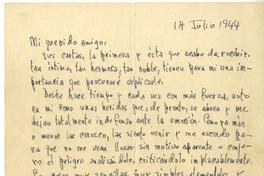 14 Julio 1944
Mi querido amigo:
Sus cartas, la primera y ésta que acabo de recibir,
tan íntima, tan hermosa, tan noble, tienen para mí una im-
portancia que procuraré explicarle.
Desde hace tiempo y cada vez con más fuerza, noto
en mí como unas heridas que, de pronto, se abren y me
dejan totalmente indefenso ante la emoción. Como más
o menos las conozco, las siento venir y me escondo pa
ra que no me vean llorar sin motivo aparente o conjuro
el peligro analizándolo, criticándolo implacablemente.
muy sencillas, muy simples, elementales y